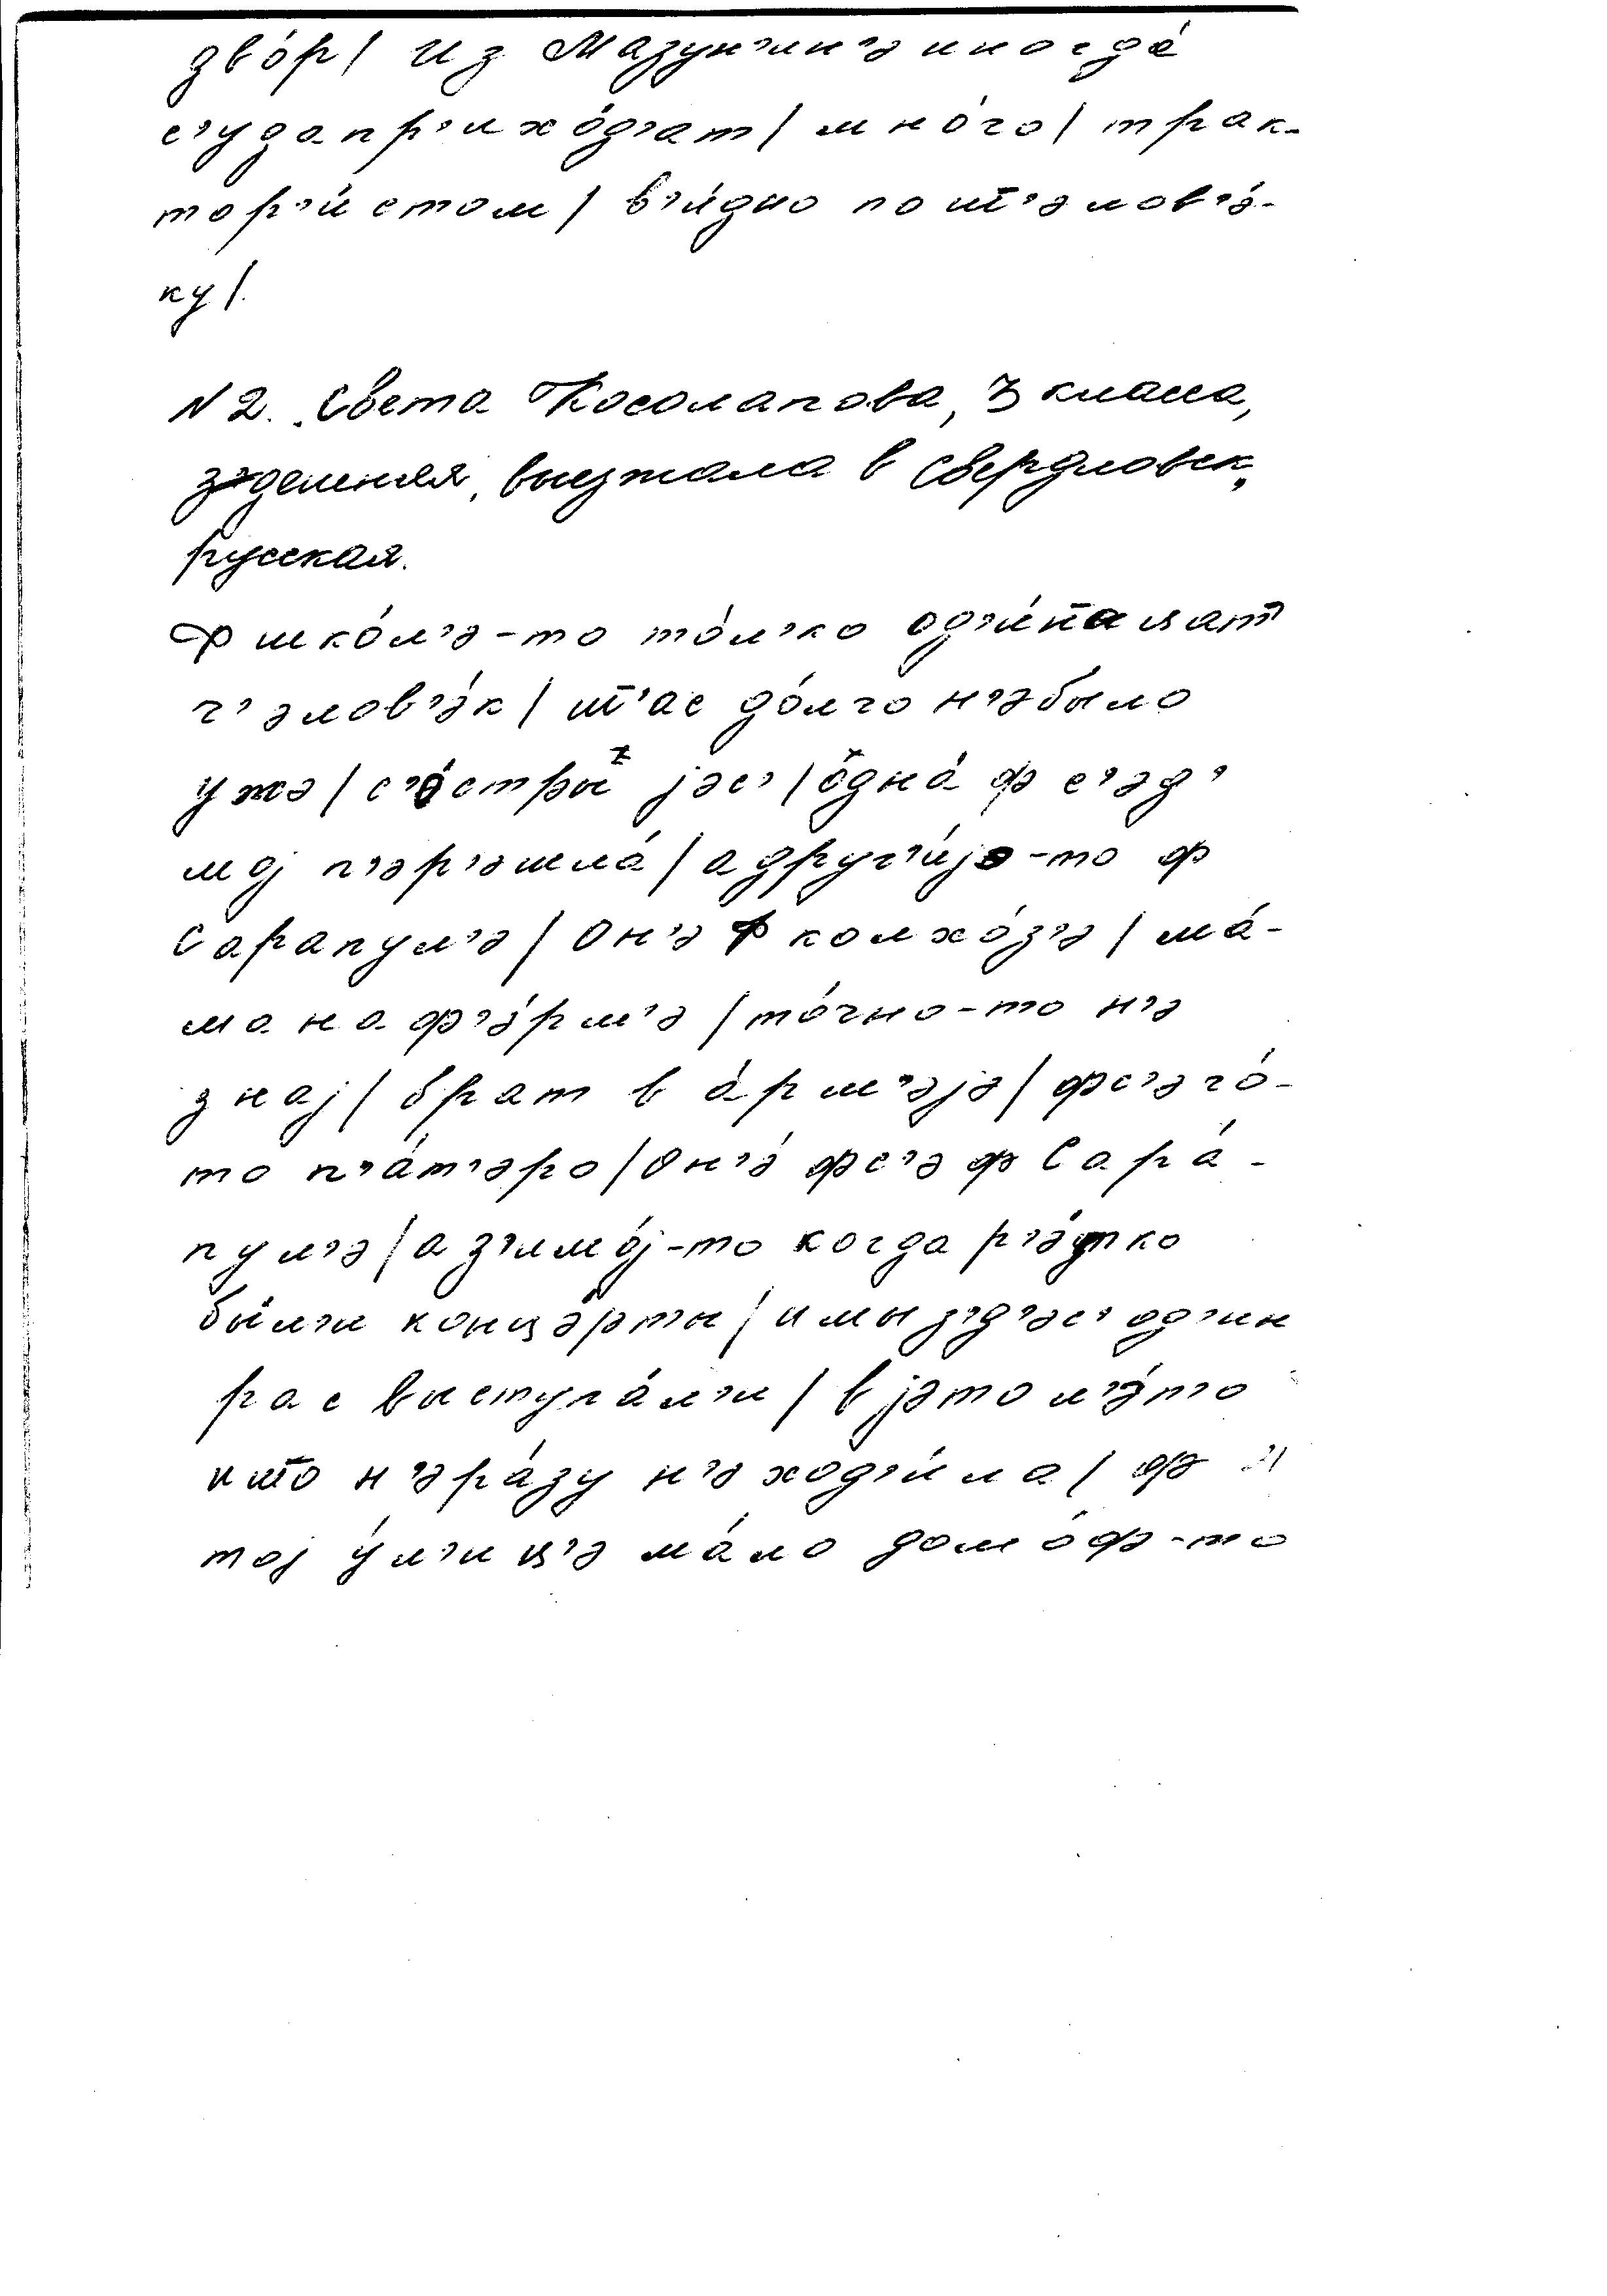 дво́р / из Мазун'ин'э иногда́
с'уда пр'ихо́д'ат / мно́го / трак-
тор'и́стом / в'и́дно по ш̅'элов'э́-
ку /.
N 2. Света Косолапова, 3 класса,
здешняя, выезжала в Свердловск,
русская.
Ф шко́л'э-то то́л'ко од'и́нацат
ч'элов'э́к / ш̅'ас до́лго н'эбыло
ужэ / с'остры́ јэс' / одна́ ф с'эд'
мој п'эр'эшла́ / а друг'и́јэ-то ф
Сарапул'э / Он'э ф колхо́з'э / ма́-
ма на ф'э́рм'э / то́чно-то н'э
знај / брат в а́рм'эјэ / фс'эго́-
то п'а́т'эро / Он'э́ фс'э ф Сара́-
пул'э / а з'имо́ј-то когда р'э́тко
бы́л'и концэ́рты / и мы з'д'эс' од'ин
рас выступа́л'и / в јэто л'э́то
н'э ра́зу н'э ход'и́ла / ф
тој у́л'иц'э ма́ло домо́ф-то